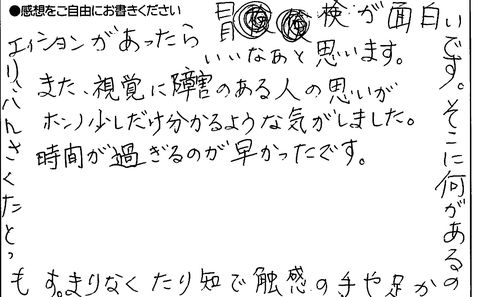 ●感想をご自由にお書きください
冒検が面白い
です。そこに何があるの
か足や手の感触で知りたくなります。
もっとたくさんバリ
エイションがあったら
いいなあと思います。
また、視覚に障害のある人の思いが
ホンノ少しだけ分かるような気がしました。
時間が過ぎるのが早かったです。